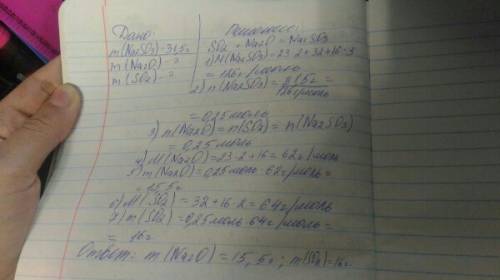 Дано:
m(Na2SO3)=31,5г
m(Na2O)-?
m(SO2)-?
Решение:
SO2 + Na2O = Na2SO3
1) M(Na2SO3)=23·2+32+16·3
= 126 г/моль
2) n(Na2SO3)= 31,5г / 126г/моль =
= 0,25 моль
3) n(Na2O)=n(SO2)=n(Na2SO3)
= 0,25 моль
4) M(Na2O)=23·2+16=62г/моль
5) m(Na2O)=0,25моль·62г/моль=
= 15,5г
6) M(SO2)=32+16·2=64г/моль
7) m(SO2)=0,25моль·64г/моль=
= 16г
Ответ: m(Na2O)=15,5г; m(SO2)=16г